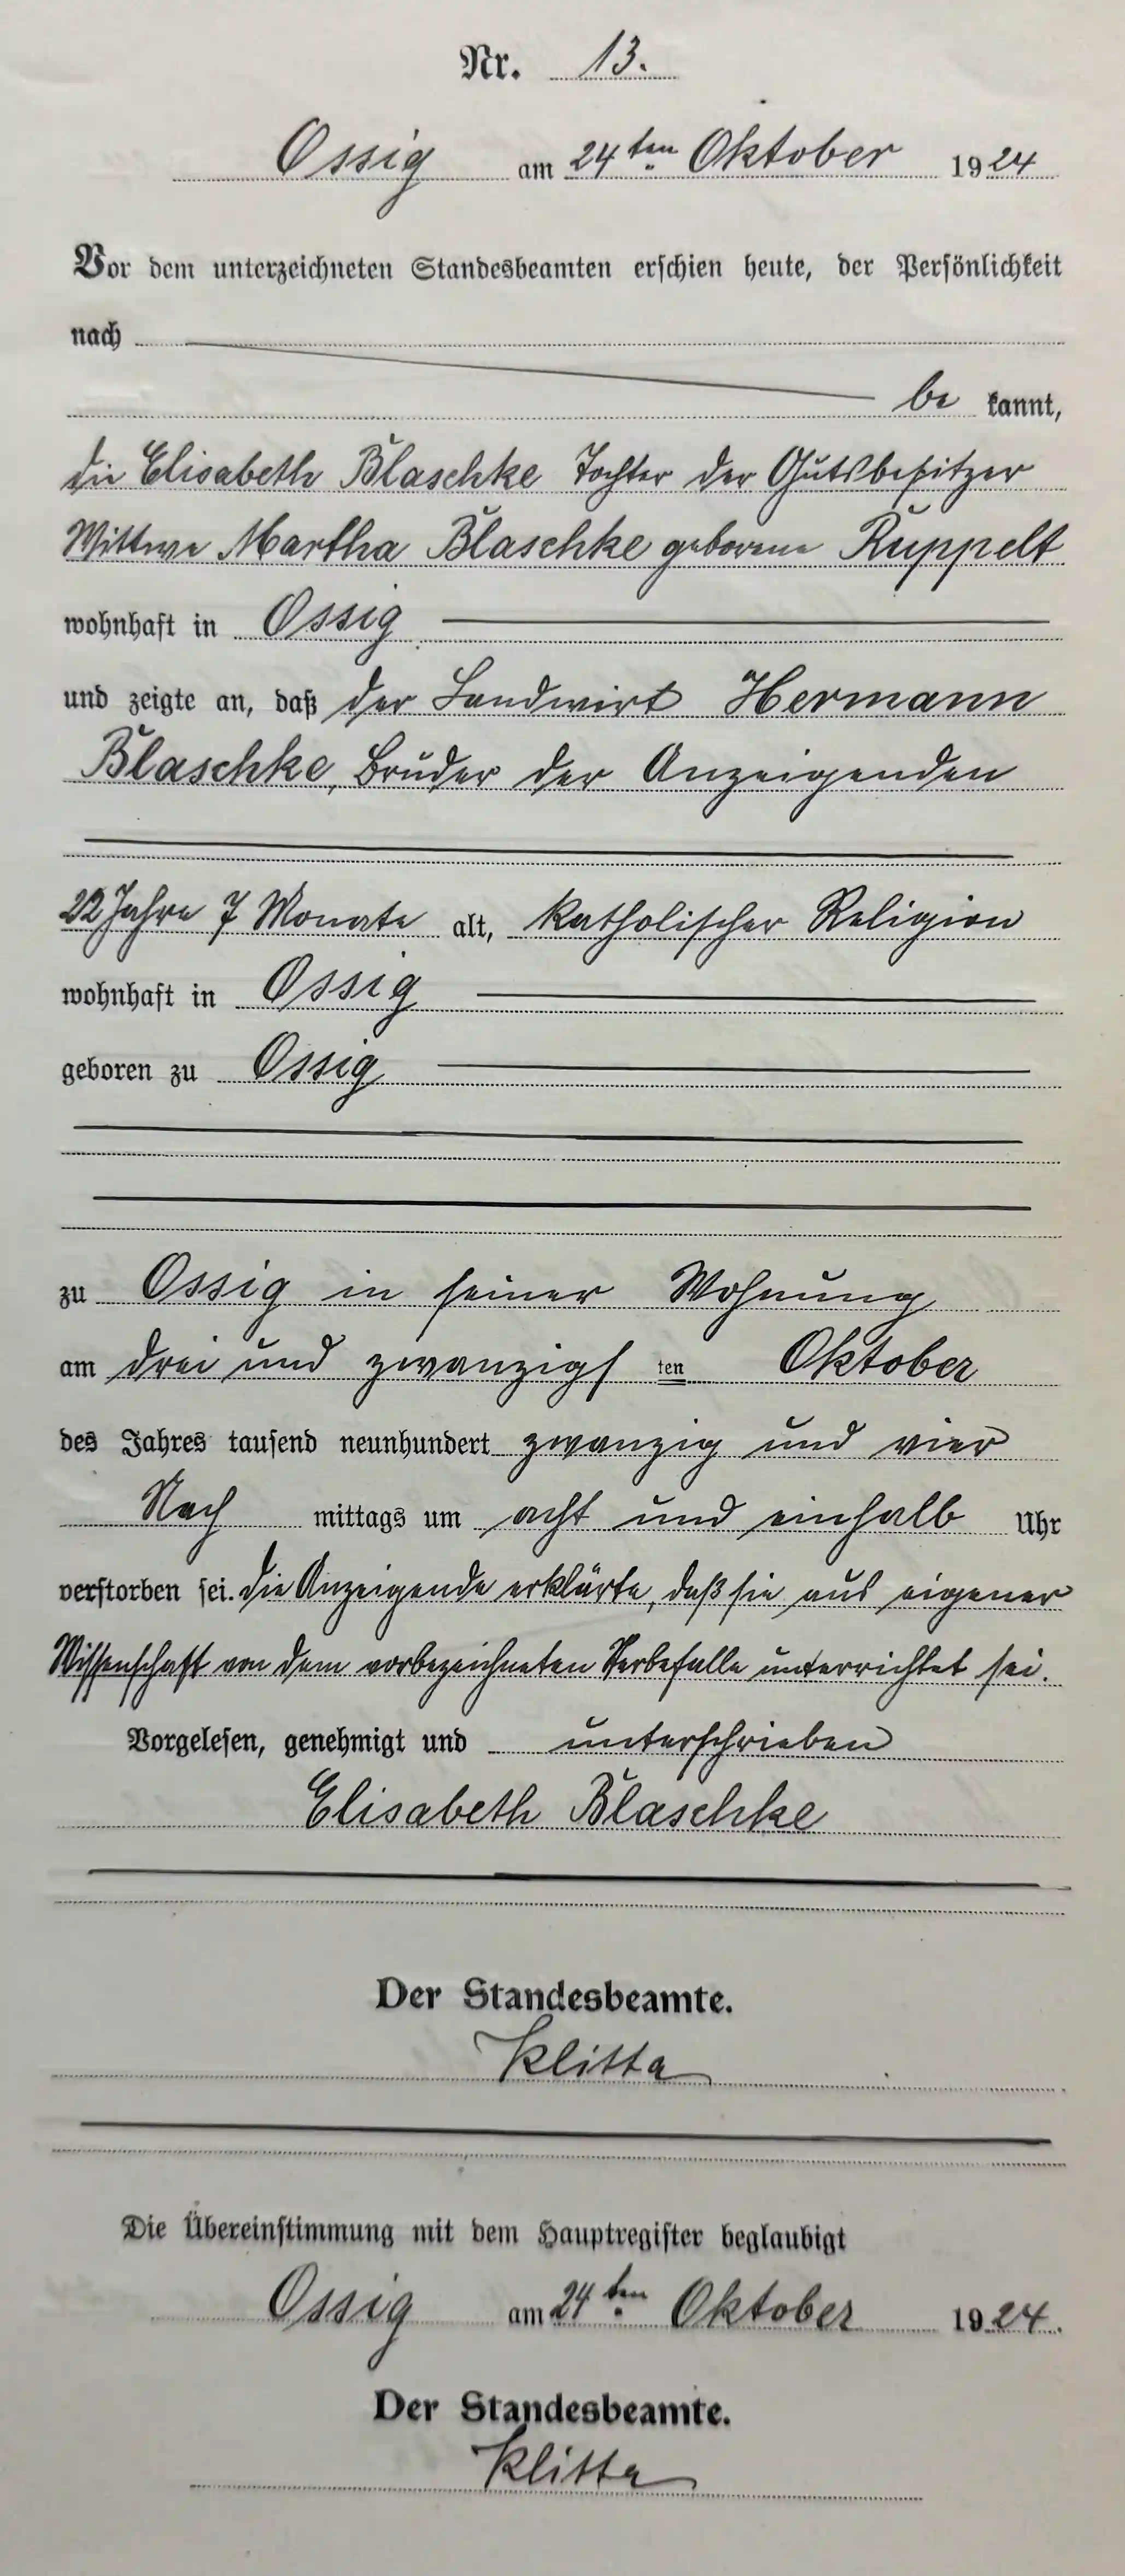 Nr. 13.
Ossig am 24ten Oktober 1924
Vor dem unterzeichneten Standesbeamten erschien heute, der Persönlichkeit
nach
be kannt,
die Elisabeth Blaschke Tochter der Gutsbesitzer
Wittwe Martha Blaschke geborene Ruppelt
wohnhaft in Ossig
und zeigte an, daß der Landwirt Hermann
Blaschke, Bruder der Anzeigenden
22 Jahre 7 Monate alt, katholischer Religion
wohnhaft in Ossig
geboren zu Ossig
zu Ossig in seiner Wohnung
am drei und zwanzigs ten Oktober
des Jahres tausend neunhundert zwanzig und vier
Nach mittags um acht und einhalb Uhr
verstorben sei. Die Anzeigende erklärte, daß sie aus eigener
Wissenschaft von dem vorbezeichneten Sterbefalle unterrichtet sei.
Vorgelesen, genehmigt und unterschrieben
Elisabeth Blaschke
Der Standesbeamte.
Klitta
Die Übereinstimmung mit dem Hauptregister beglaubigt
Ossig am 24ten Oktober 1924.
Der Standesbeamte.
Klitta